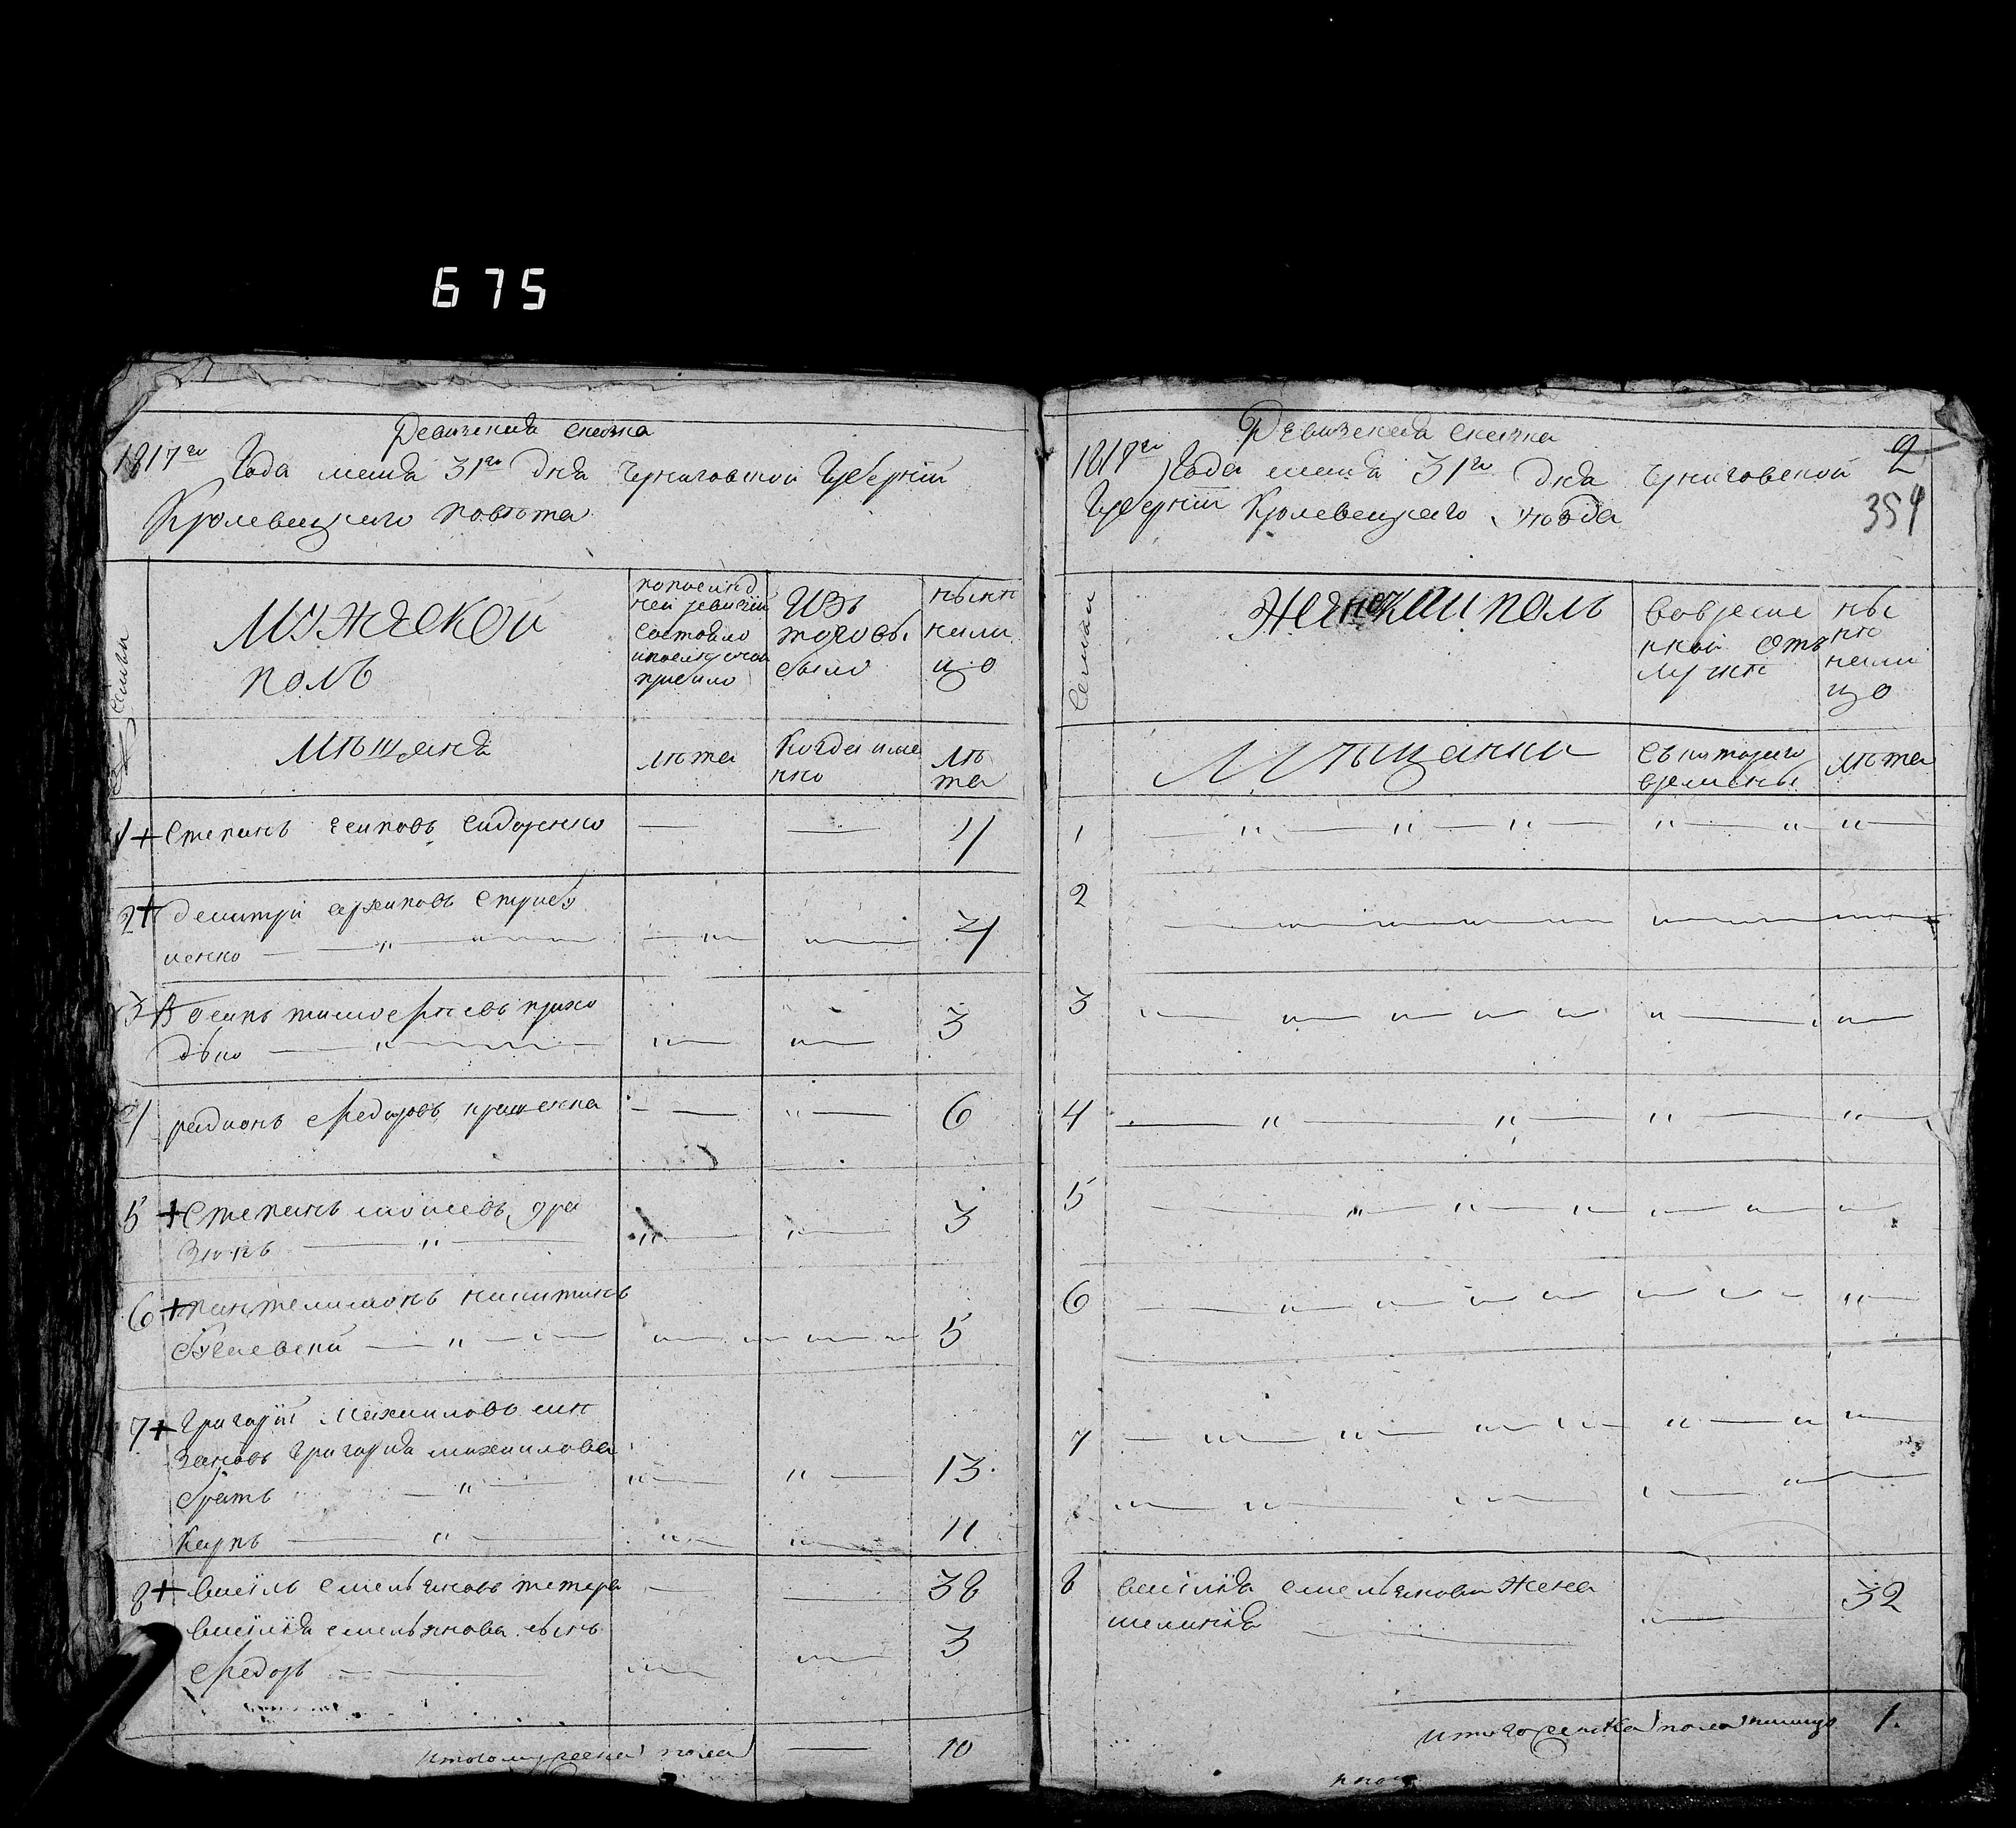 675
Ревизская сказка
1817го Года маия 31го дня Черниговской Губернии
Кролевецкого повета
Семьи
Мужеской
полъ
по последней ревизии состояло и после оной прибыло
Изъ того выбыло
ныне налицо
Мещаня
лета
Когда именно
лета
1 + Степанъ Сидоренко 4
2 + Демитри архиповъ
ченко 4
3 + Осипъ тимофеевъ прихо
дько 3
4 радионъ федоровъ 6
5 + Степанъ 3
6 + пантелимонъ никитинъ
5
7 + Григорий Михаиловъ
Григория михаилова
братъ 13
Карпъ 11
8 + Василь емельяновъ тетера 38
Василя емельянова сынъ
Федоръ 3
итого мужеска пола 10
Ревизская сказка
1817го Года маия 31го дня Черниговской
Губернии Кролевецкого уезда
2
354
Семьи
Женский полъ
Во временной отлучке
ныне налицо
Мещанки
Съ которого времены
лета
1
2
3
4
5
6
7
8 Василя емельянова жена
мелания 32
итого женска пола налицо 1.